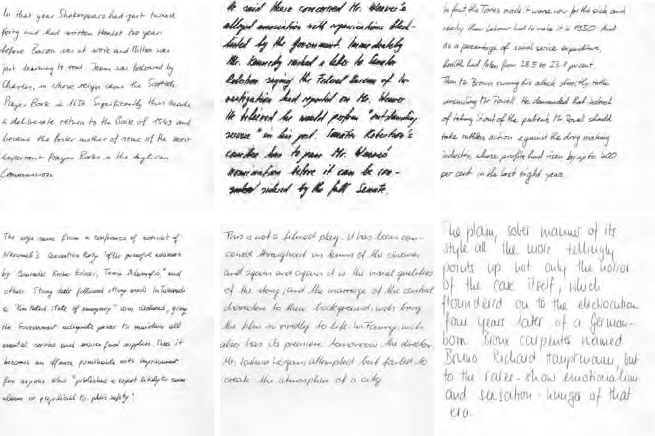 In that year Shakespeare had just turned
forty and had written Hamlet two years
before. Bacon was at work and Milton was
just learning to read. James was followed by
Charles, in whose reign came the Scottish
Prayer Book in 1637. Significantly this made
a deliberate return to the Book of 1549 and
became the foster mother of some of the most
important Prayer Books in the Anglican
Communion.
He said these concerned Mr. Weaver's
alleged association with organisations black-
listed by the Government. Immediately
Mr. Kennedy rushed a letter to Senator
Robertson saying the Federal Bureau of In-
vestigation had reported on Mr. Weaver.
He believed he would perform "outstanding
service" in his post. Senator Robertson's
committee has to pass Mr. Weaver's
nomination before it can be con-
sidered by the full Senate.
In fact the Tories made it worse now for the sick and
needy than Labour had to make it in 1950. And
as a percentage of social service expenditure,
health had fallen from 28.5 to 23.9 per cent.
Then Mr. Brown swung his attack directly to the
unsmiling Mr. Powell. He demanded that instead
of taking it out of the patient, Mr. Powell should
take ruthless action against the drug making
industry, whose profits had risen by up to 400
per cent in the last eight years.
The move came from a conference of
Nkrumah's Convention Party after
by Comrades Krobo Edusei, Tawia Adamafio, and
others. Strong
a "limited state of emergency" was declared, giving
the Government adequate power to maintain all
essential services and ensure food supplies. Thus it
became an offence punishable with imprisonment
for anyone who "published a report likely to cause
alarm or prejudicial to public safety".
This is not a filmed play. It has been con-
ceived throughout in terms of the cinema,
and again and again it is the visual qualities
of the story, and the marriage of the central
characters to their background, which bring
the film so vividly to life. In Tammy, which
also has its premiere tomorrow, the director,
Mr. attempted but failed to
create the atmosphere of a city
The plain, sober manner of its
style all the more tellingly
points up not only the horror
of the case itself, which
floundered on to the electrocution
four years later of a German-
born Bronx carpenter named
Bruno Richard Hauptmann, but
to the rates-show emotionalism
and sensation-hunger of that
era.